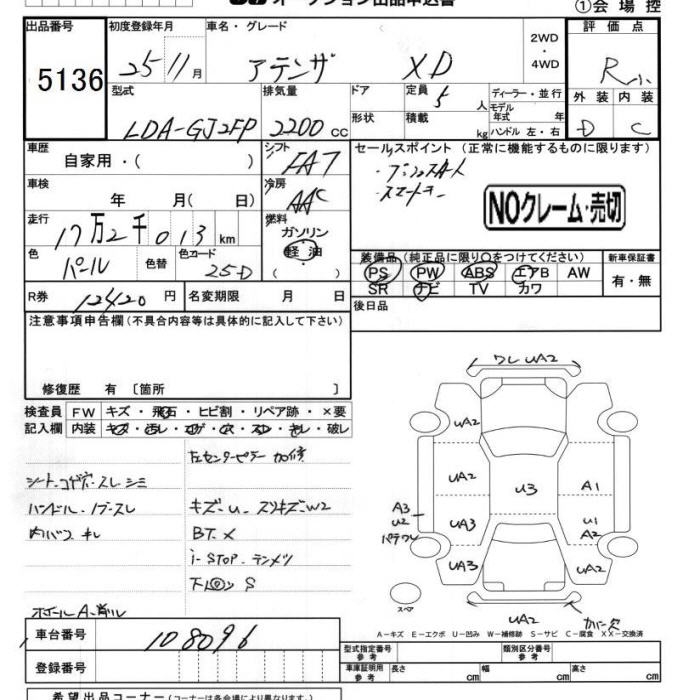 オークション出品申込書
①会 場 控
出品番号
5136
初度登録年月
25 11月
車名・グレード
アテンザ XD
2WD
・
4WD
評 価 点
R
外 装 内 装
D C
型式
LDA-GJ2FP
排気量
2200 cc
ドア
形状
定員
5 人
積載
kg
ディーラー・並 行
モデル
年式 年
ハンドル 左・右
車歴
自家用・( )
シフト
FA7
セールスポイント (正常に機能するものに限ります)
・プッシュスタート
・スマートキー
NOクレーム・売切
車検
年 月( 日)
冷房
AAC
走行
17万2千013 km
燃料
ガソリン
軽 油
( )
色
パール
色替
色コード
25D
装備品 (純正品に限り○をつけてください)
PS PW ABS エアB AW
SR ナビ TV カワ
新車保証書
有・無
R券
12420 円
名変期限 月 日
後日品
注意事項申告欄 (不具合内容等は具体的に記入して下さい)
修復歴 有 〔箇所 〕
検査員
記入欄
FW キズ ・ 飛石 ・ ヒビ割 ・ リペア跡 ・ ×要
内装 キズ・汚レ・コゲ・穴・スレ・キレ・破レ
左センターピラー 加修
シート・コゲ穴・スレ シミ
ハンドル・ノブ・スレ
キズ-U スリキズ-W2
内バス キレ
BT.×
i-STOP.テンメツ
下回り S
ホイールA・削ル
ワレ UA2
UA2
UA2
UA3
UA3
U3
A1
U1
A2
UA2
A3
U2
パテワレ
スペア
UA2
カバー欠
A-キズ E-エクボ U-凹み W-補修跡 S-サビ C-腐食 XX-交換済
車台番号
108096
登録番号
型式指定番号
参 考
類別区分番号
参 考
車庫証明用
参 考
長さ cm
幅 cm
高さ cm
希望出品コーナー (コーナーは各会場により異なります。)